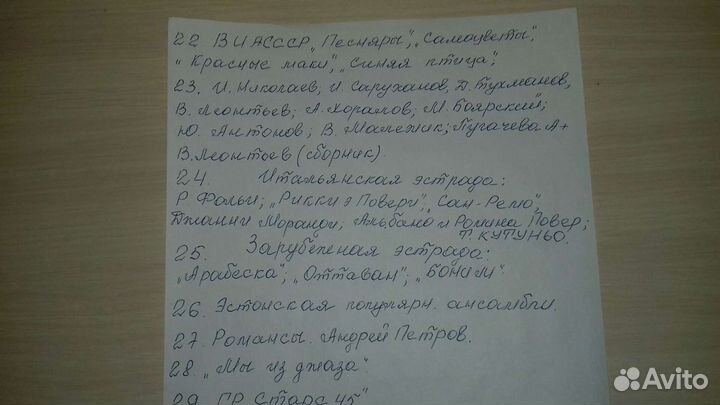 22 ВИАСССР „Песняры", „Самоцветы",
„Красные маки", „Синяя птица";
23. И. Николаев, И. Саруханов, Д. Тухманов,
В. Леонтьев; А. Хоралов; М. Боярский;
Ю. Антонов; В. Малежик; Пугачева А +
В. Леонтьев (сборник).
24. Итальянская эстрада:
Р Фольи; „Рикки э Повери", „Сан-Ремо",
Джанни Моранди; Альбано и Ромина Повер;
Т. КУТУНЬО.
25. Зарубежная эстрада:
„Арабеска"; „Оттаван"; „Бони М".
26. Эстонская популярн. ансамбли.
27. Романсы. Андрей Петров.
28. „Мы из джаза".
29 ГР Старс 45"
Avito